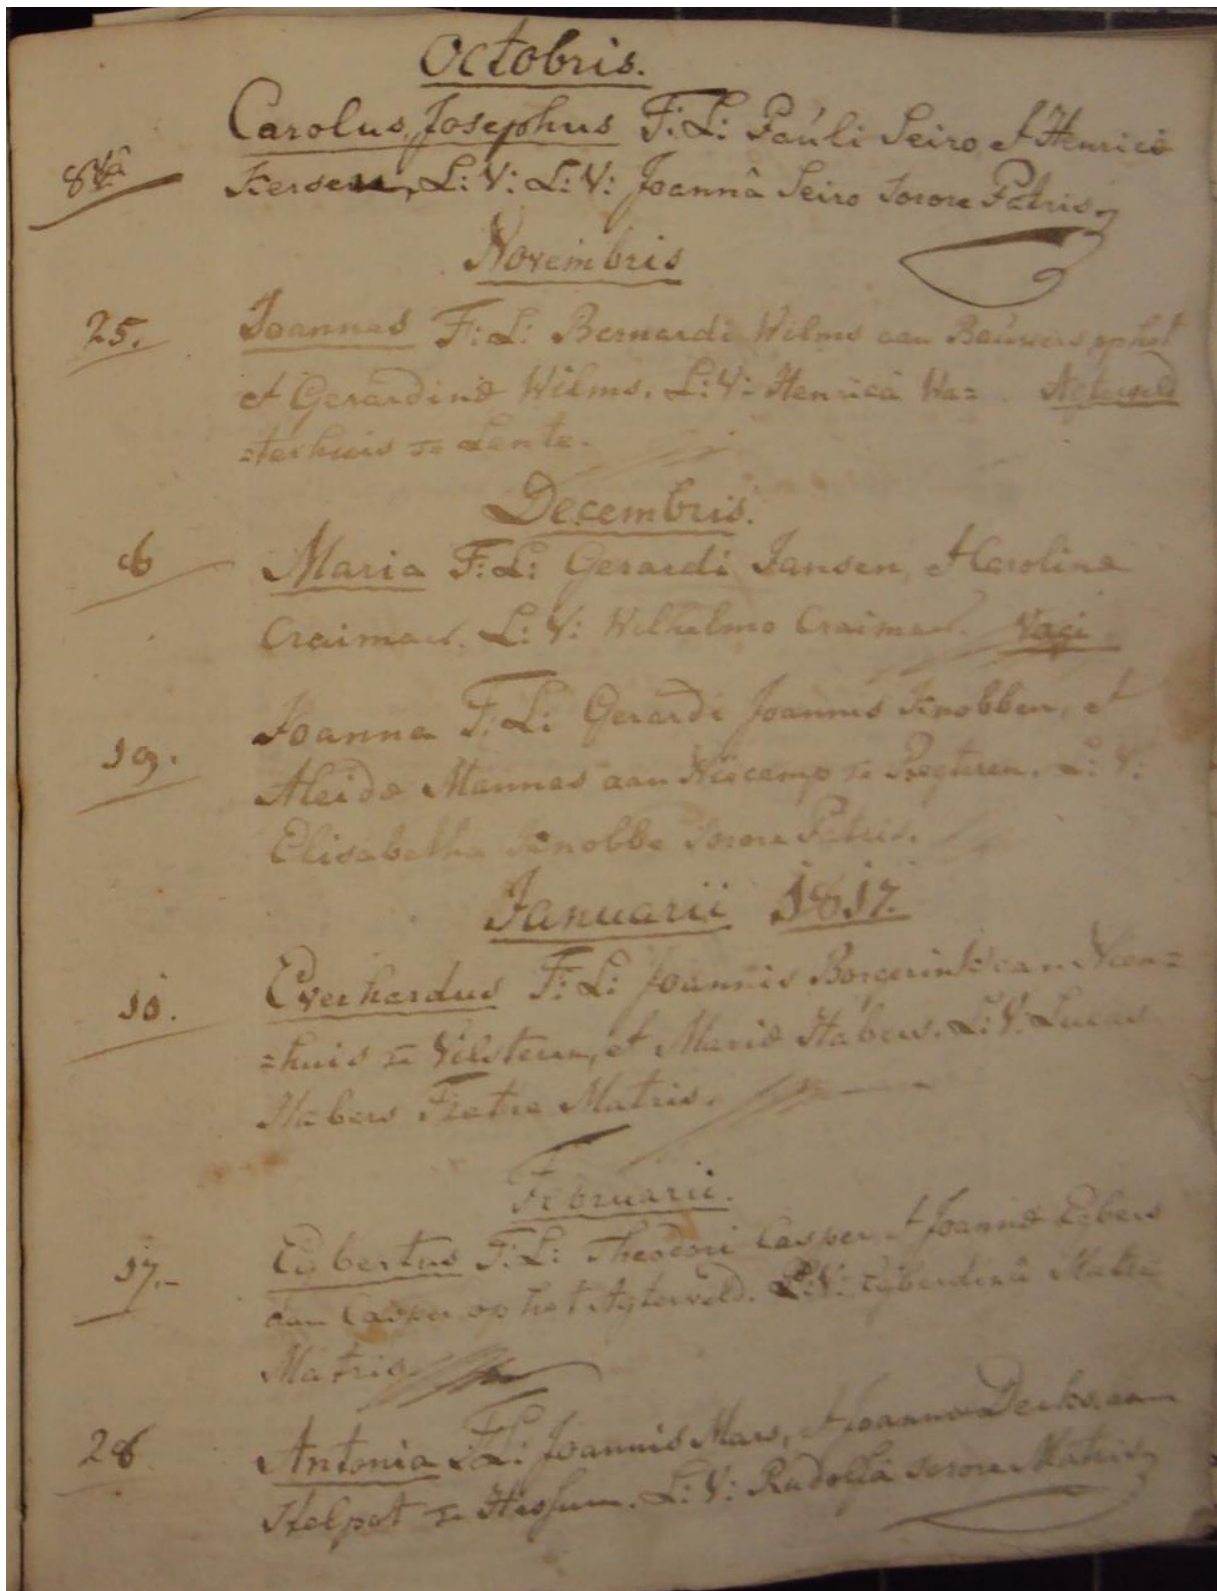 Octobris.
8va Carolus Josephus F: L: Pauli Seiro et Henrici
Kersen, L: V: L: V: Joannâ Seiro Sorore Patris
Novembris
25. Joannes F: L: Bernardi Wilms aan Bauwers op het
et Gerardinæ Wilms. L: V: Henricâ Wa= Agterveld
=terhuis te Lente.
Decembris.
6 Maria F: L: Gerardi Jansen, et Carolinæ
Craimer. L: V: Wilhelmo Craimer. Vagi
19. Joanna F: L: Gerardi Joannis Knobben, et
Aleidæ Mannes aan Niecamp te Regteren. L: V:
Elisabetha Knobbe Sorore Patris.
Januarii 1817.
10. Everhardus F: L: Joannis Borgerink van Neen=
=huis te Vilsteren, et Mariæ Habers. L: V: Lucas
Habers Fratre Matris.
Februarii.
17. Egbertus F: L: Theodori Casper et Joannæ Egbers
aan Casper op het Agterveld. L: V: Egberdinâ Matre
Matris
28 Antonia F: L: Joannis Mars, et Joannæ Derks aan
Stelpot te Hessum. L: V: Rudolfâ Sorore Matris